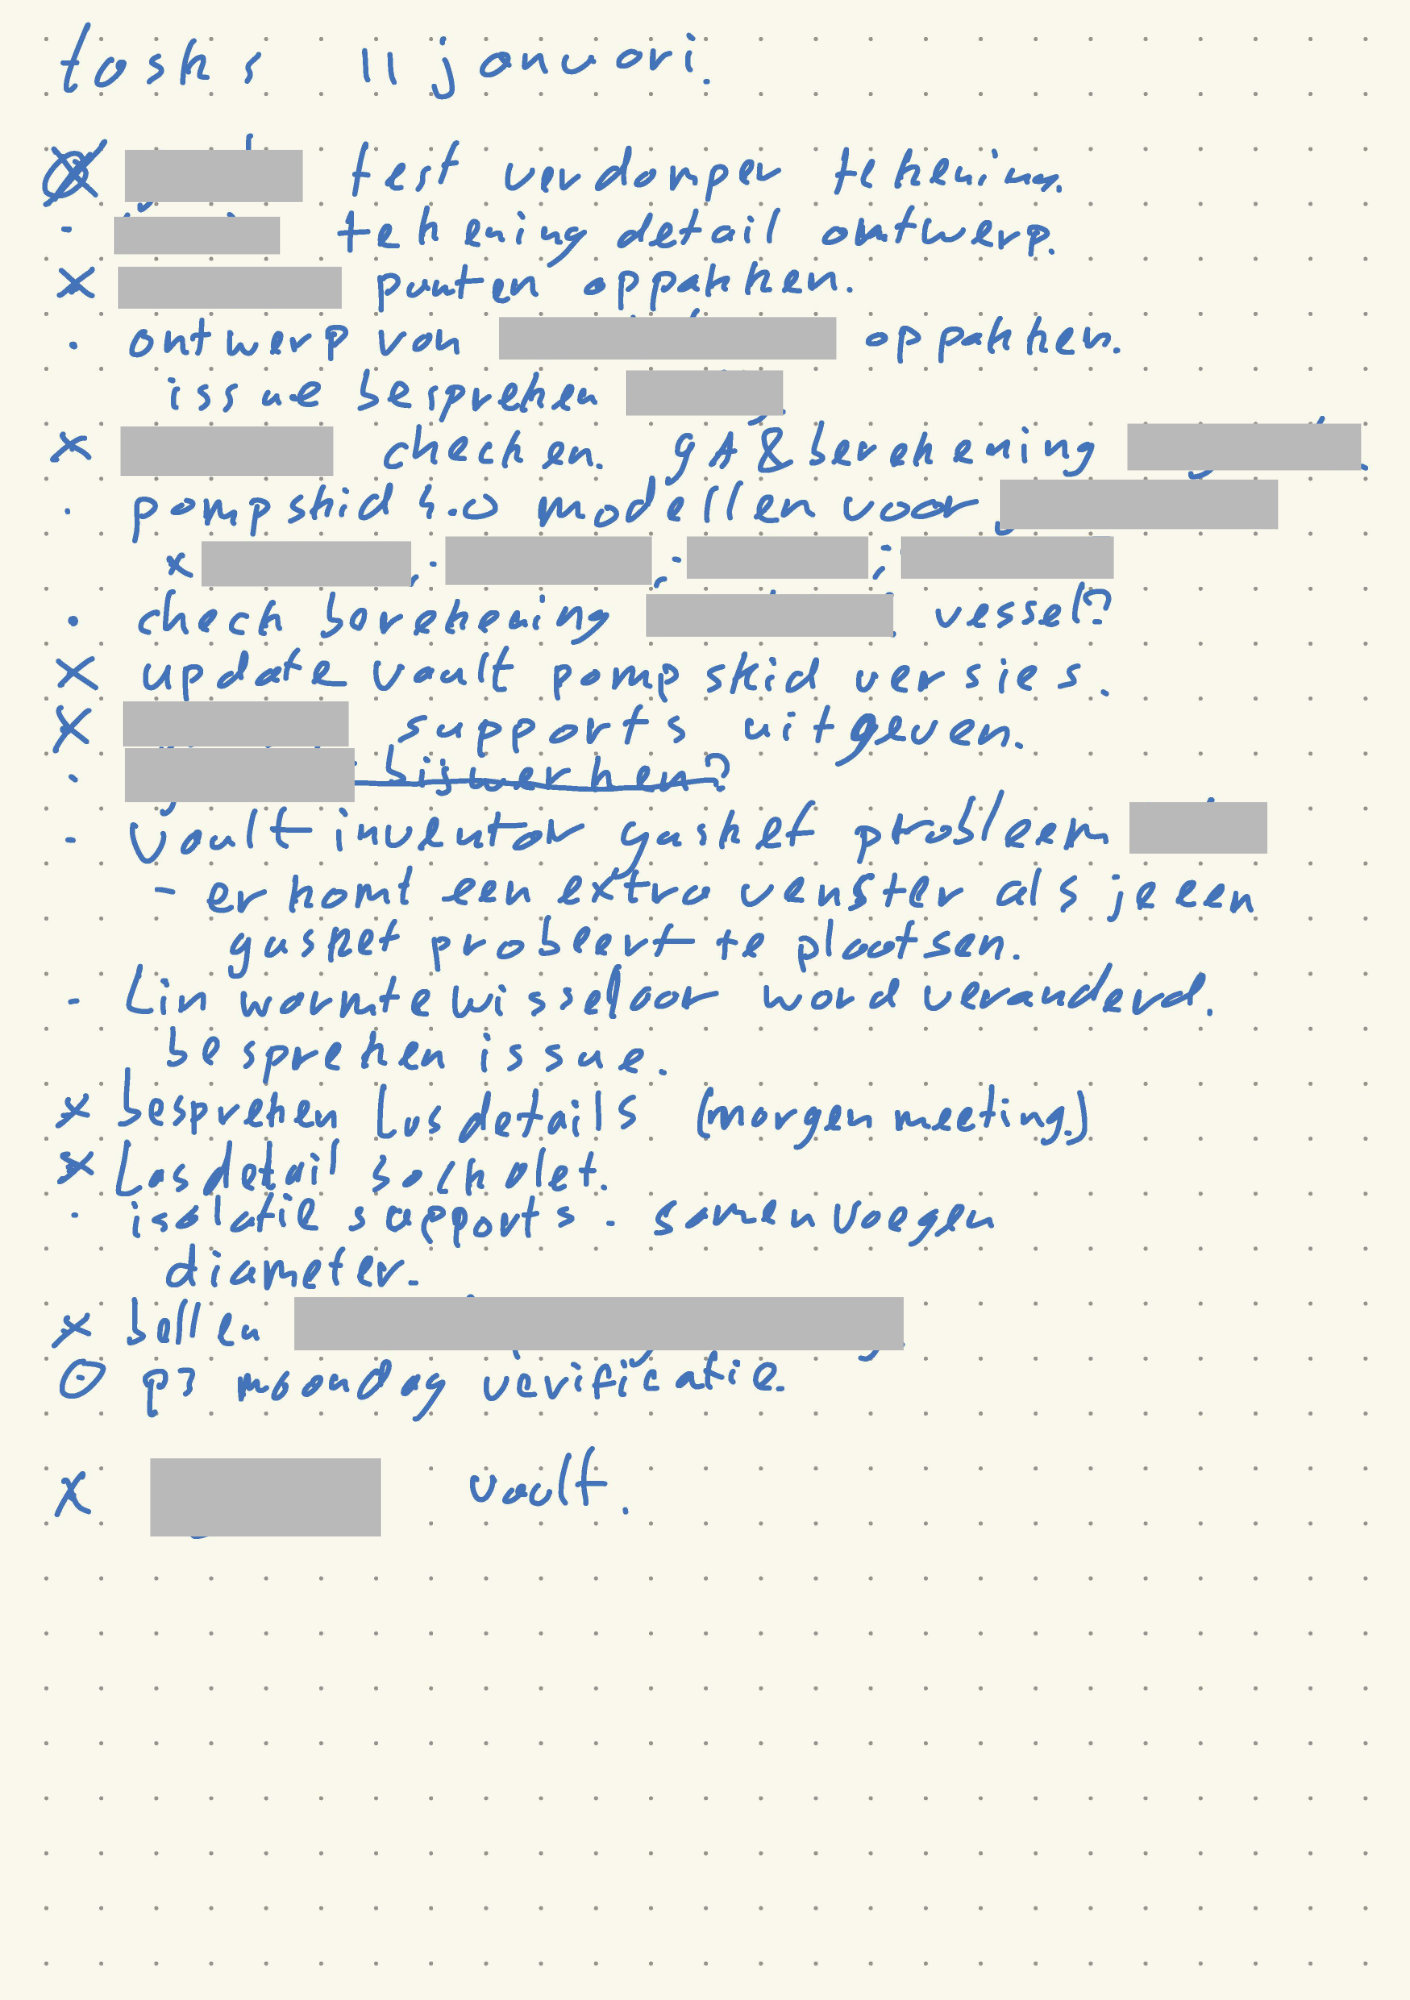 tasks 11 januari.
x test verdamper tekening.
- tekening detail ontwerp.
x punten oppakken.
. ontwerp van oppakken.
issue bespreken
x checken. GA & berekening
. pompskid 4.0 modellen voor
x , - , - , -
. check berekening vessel?
x update vault pompskid versies.
x supports uitgeven.
. bijwerken?
- Vault inventor gasket probleem
- er komt een extra venster als je een
gasket probeert te plaatsen.
- Lin warmtewisselaar word veranderd.
bespreken issue.
x bespreken Lasdetails (morgen meeting.)
x Lasdetail sockolet.
. isolatie supports. samenvoegen
diameter.
x bellen
p3 maandag verificatie.
x vault.